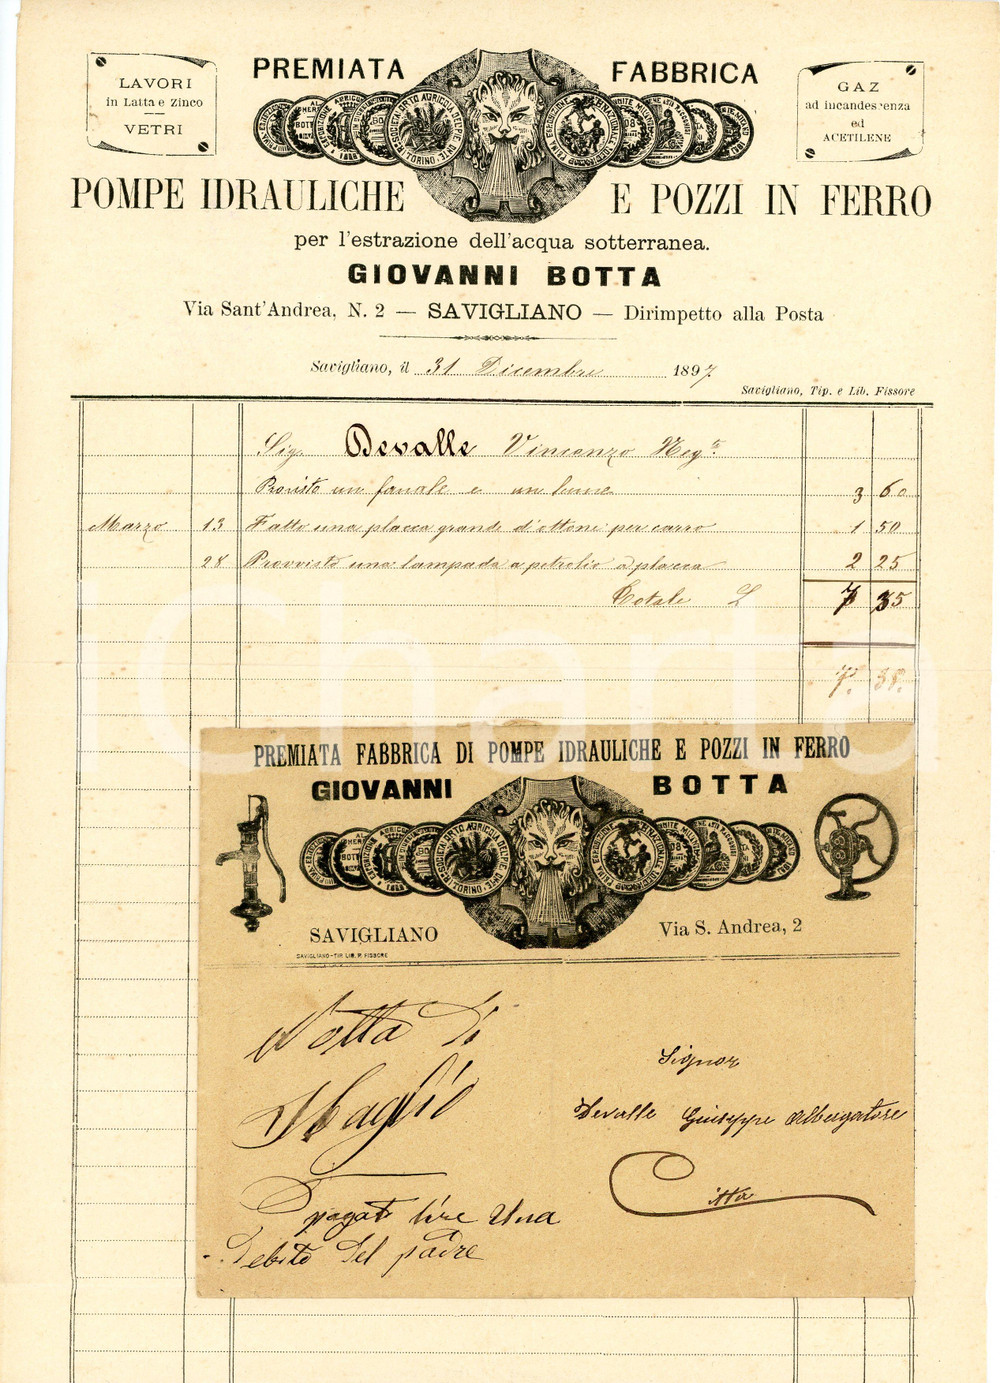 PREMIATA FABBRICA
LAVORI
in Latta e Zinco
VETRI
GAZ
ad incandescenza
ed
ACETILENE
POMPE IDRAULICHE E POZZI IN FERRO
per l'estrazione dell'acqua sotterranea.
GIOVANNI BOTTA
Via Sant'Andrea, N. 2 — SAVIGLIANO — Dirimpetto alla Posta
Savigliano, il 31 Dicembre 1897
Savigliano, Tip. e Lib. Fissore
Sig. Devalle Vincenzo Neg.te
Provisto un fanale e un lume 3 60
Marzo 13 Fatto una placca grande d'ottone per carro 1 50
28 Provvisto una lampada a petrolio a placca 2 25
Totale L 7 35
7. 35.
iCharta
PREMIATA FABBRICA DI POMPE IDRAULICHE E POZZI IN FERRO
GIOVANNI BOTTA
SAVIGLIANO
Via S. Andrea, 2
SAVIGLIANO-TIP. LIB. P. FISSORE
Notta di
Maglio
pagato lire Una
Debito del padre
Signor
Devalle Giuseppe Albergatore
Città